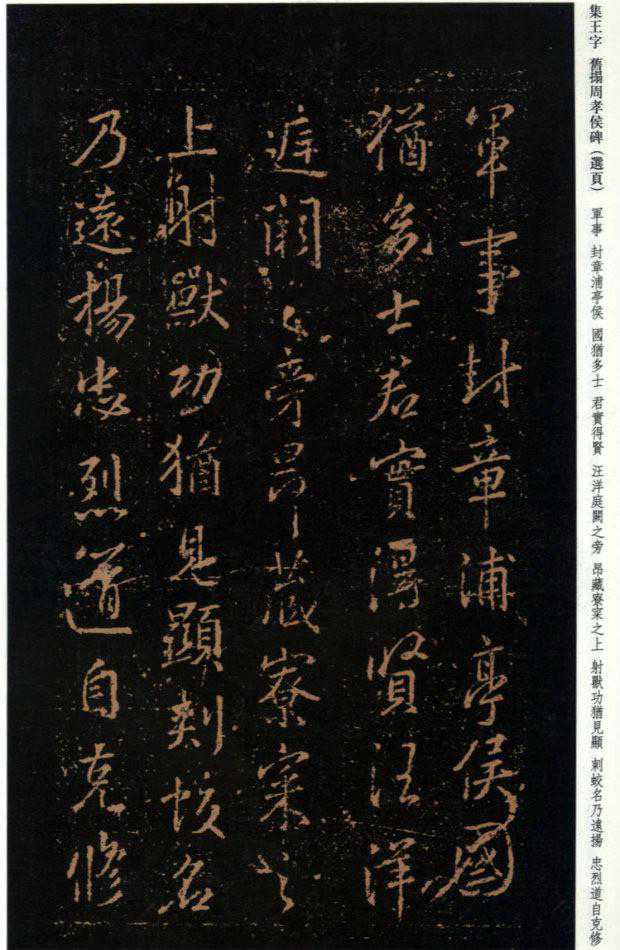 集王字　舊搨周孝侯碑（選頁）　軍事　封章浦亭侯　國猶多士　君實得賢　汪洋庭闕之旁　昂藏寮寀之上　射獸功猶見顯　刺蛟名乃遠揚　忠烈道自克修
軍事封章浦亭侯國
猶多士君實得賢汪洋
庭闕之旁昂藏寮寀之
上射獸功猶見顯刺蛟名
乃遠揚忠烈道自克修